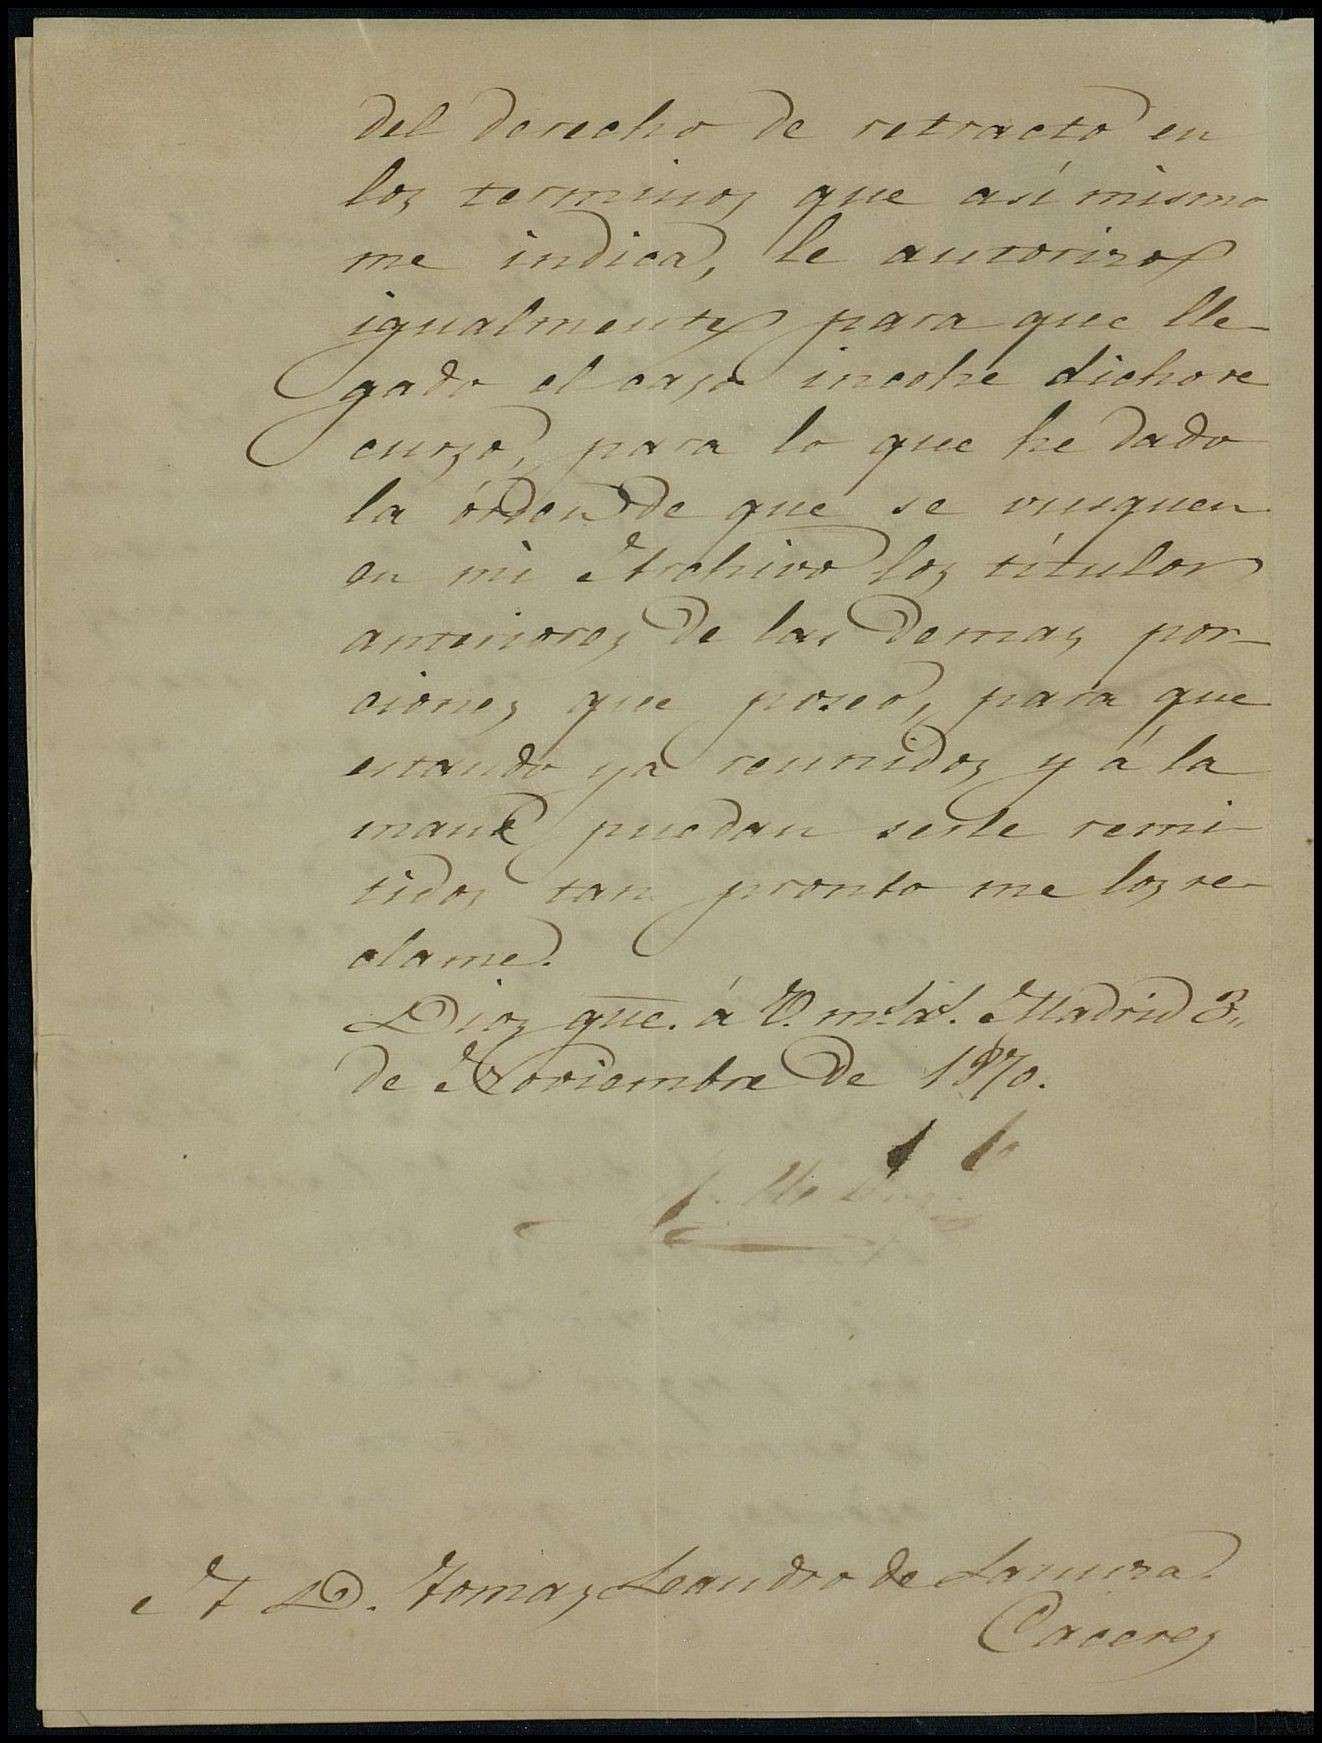 del derecho de retracto en
los terminos que así mismo
me indica, le autorizo
igualmente para que lle-
gado el caso incohe dicho re
curso, para lo que he dado
la órden de que se busquen
en mi Archivo los títulos
anteriores de las demas por-
ciones que poseo, para que
estando ya reunidos y á la
mano puedan serle remi-
tidos tan pronto me los re-
clame.
Dios gue. á V. ms. as. Madrid 3,,
de Noviembre de 1870.
A D. Tomas Leandro de Lanuza.
Caceres